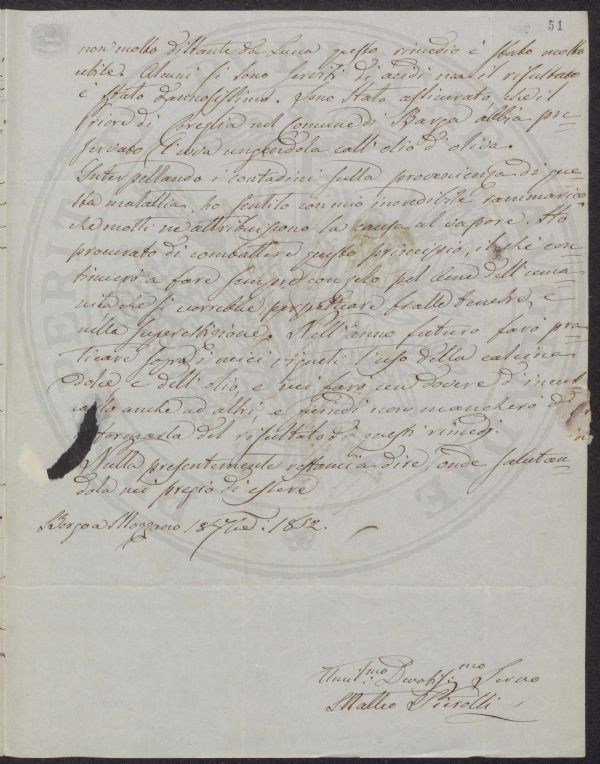 51
non molto distante da Lucca questo rimedio è stato molto
utile. Alcuni si sono serviti di acidi ma il risultato
è stato dannosissimo. Sono stato assicurato che il
Priore di Coreglia nel Comune di Barga abbia pre-
servato l'uva ungendola coll'olio d'oliva.
Interpellando i contadini sulla provenienza di que-
sta malattia, ho sentito con mio incredibile rammarico
che molti ne attribuiscono la causa al vapore. Ho
procurato di combattere questo principio, il che con-
tinuerò a fare sempre con zelo pel bene dell'uma-
nità che si vorrebbe perpetuare fralle tenebre, e
nella superstizione. Nell'anno futuro farò pra-
ticare sopra i miei vigneti l'uso della calcina
dolce e dell'olio, e mi farò un dovere d'incul-
carlo anche ad altri, e quindi non mancherò d'
informarla del risultato di questi rimedj.
Nulla presentemente restami a dire onde salutan-
dola mi pregio di essere
Borgo a Mozzano 18 7bre. 1852.
Umilmo Devotissimo Servo
Matteo Pierotti